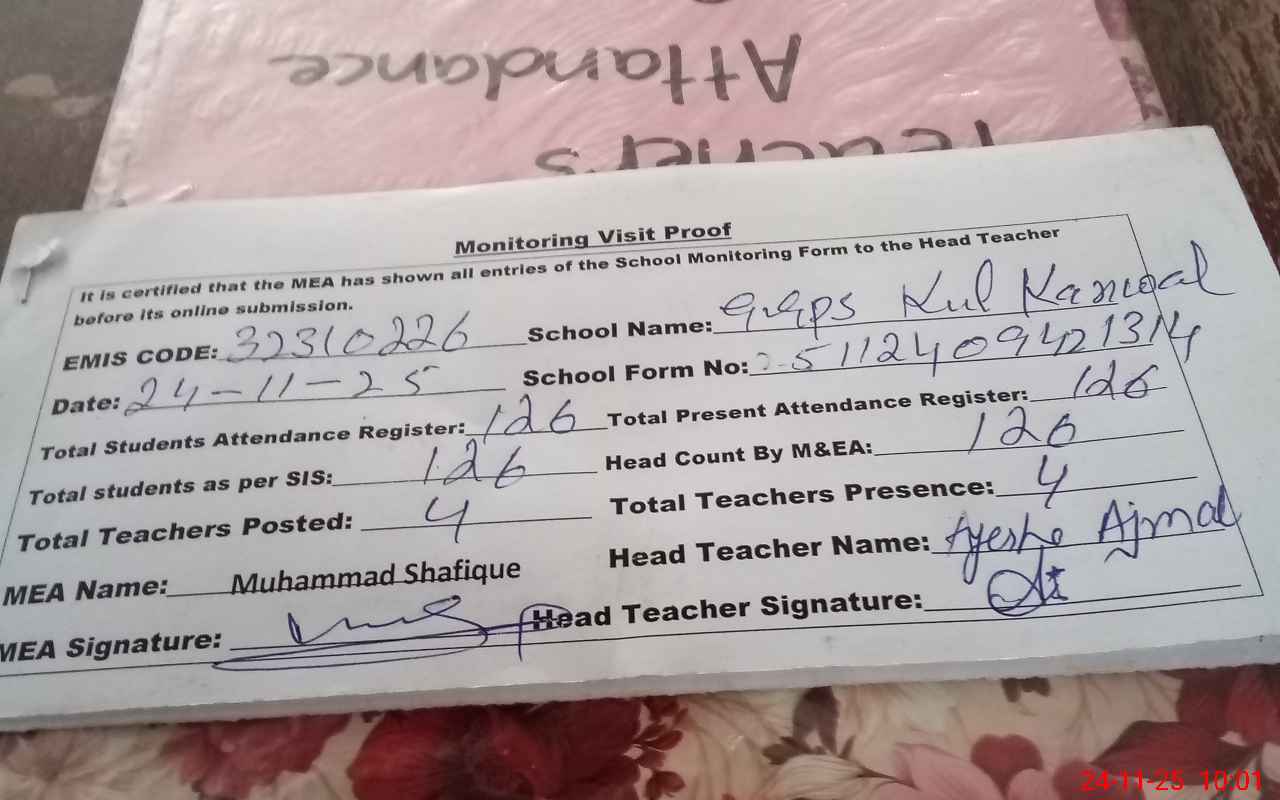 Attandance
Teachers
Monitoring Visit Proof
It is certified that the MEA has shown all entries of the School Monitoring Form to the Head Teacher
before its online submission.
EMIS CODE: 32310226 School Name: GGPS Kul Kanwal
Date: 24-11-25 School Form No: 25112409421314
Total Students Attendance Register: 126 Total Present Attendance Register: 126
Total students as per SIS: 126 Head Count By M&EA: 126
Total Teachers Posted: 4 Total Teachers Presence: 4
MEA Name: Muhammad Shafique Head Teacher Name: Ayesha Ajmal
MEA Signature: Head Teacher Signature:
24-11-25 10:01